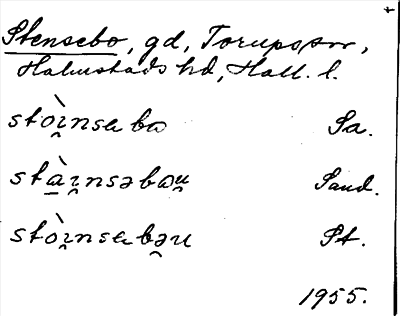 Stensebo, gd, Torups sn,
Halmstads hd, Hall. l.
stòi̯nsɐbɷ Sa.
stàɪ̯nsəbɷu̯ Sand.
stòɪ̯nsɐbə̯u St.
1955.